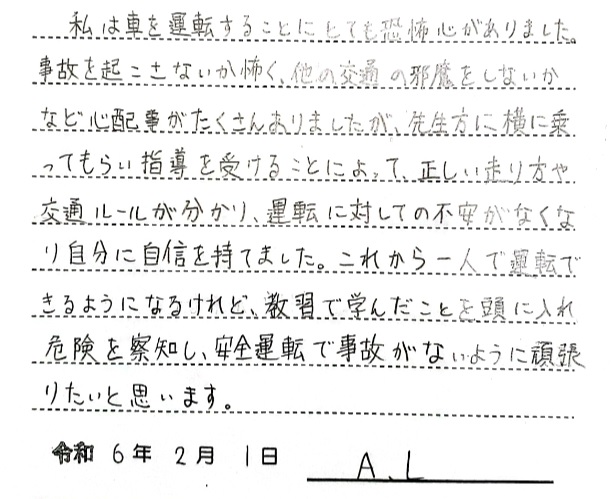 私は車を運転することにとても恐怖心がありました。
事故を起こさないか怖く、他の交通の邪魔をしないか
など心配事がたくさんありましたが、先生方に横に乗
ってもらい指導を受けることによって、正しい走り方や
交通ルールが分かり、運転に対しての不安がなくな
り自分に自信を持てました。これから一人で運転で
きるようになるけれど、教習で学んだことを頭に入れ
危険を察知し、安全運転で事故がないように頑張
りたいと思います。
令和 6年 2月 1日 A.L